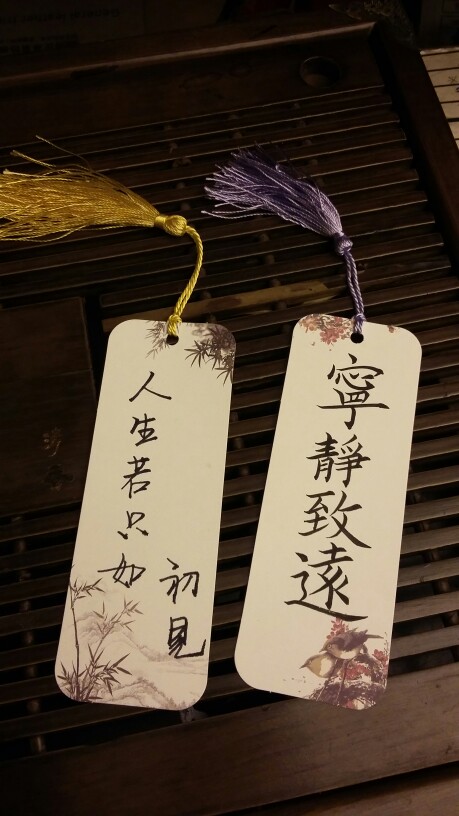 人生若只如
初見
寧靜致遠